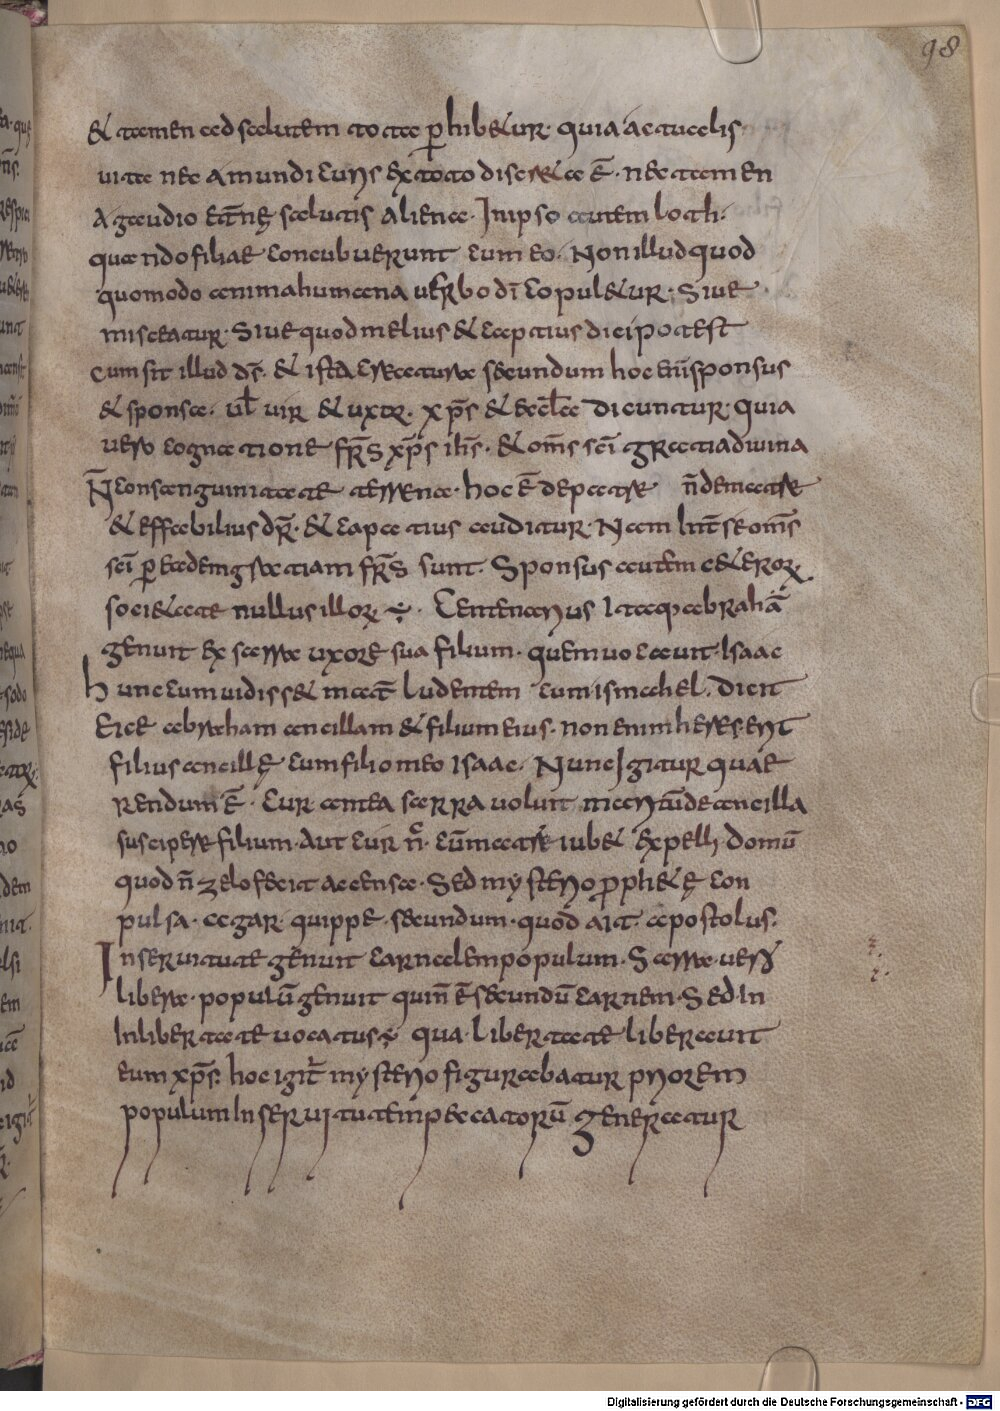 98
& tamen ad salutem tota perhib&ur. quia actualis
uitae nec a mundi curis ex toto discreta ē. nec tamen
a gaudio ęternę salutis aliena. In ipso autem loth.
quando filiae concubuerunt cum eo. Non illud quod
quomodo anima humana uerbo dī copul&ur. Siue
misceatur. Siue quod melius & aptius dici potest
cum sit illud dš. & ista creatura secundum hoc enī sponsus
& sponsa. uł uir & uxor. xp̄s & eccła dicuntur. quia
uero cognatione fr̄s xp̄s ihš. & om̄s sc̄i gratia diuina
N̄ consanguinitate terrena. hoc ē de patre n̄ de matre
& effabilius dr̄. & captius auditur. Nam int̄ se om̄s
sc̄i p eadem gratiam fr̄s sunt. Sponsus autem
nullus illoꝝ ÷. Itaq abrahā
genuit ex sarra uxore sua filium. quem uocauit. Isaac
hunc cum uidiss& mat̄ ludentem cum ismahel. dicit
Eice abraham ancillam & filium eius. non enim heres erit
filius ancillę cum filio meo isaac. Nunc Igitur quae
rendum ē. cur antea sarra uoluit maritū de ancilla
suscipere filium. Aut cur n̄c cū matre iub& expelli domū
quod n̄ zelo fecit accensa. Sed mysterio proph&ię con
pulsa. agar. quippe. secundum. quod ait. apostolus.
In seruitute genuit carnalem populum. Sarra. uero
libera. populū genuit qui n̄ ē secundū carnem. Sed in
In libertate uocatus ÷ qua libertate liberauit
eum xp̄s. hoc igit̄ mysterio figurabatur priorem
populum In seruitutem peccatorū generatur
Digitalisierung gefördert durch die Deutsche Forschungsgemeinschaft - DFG